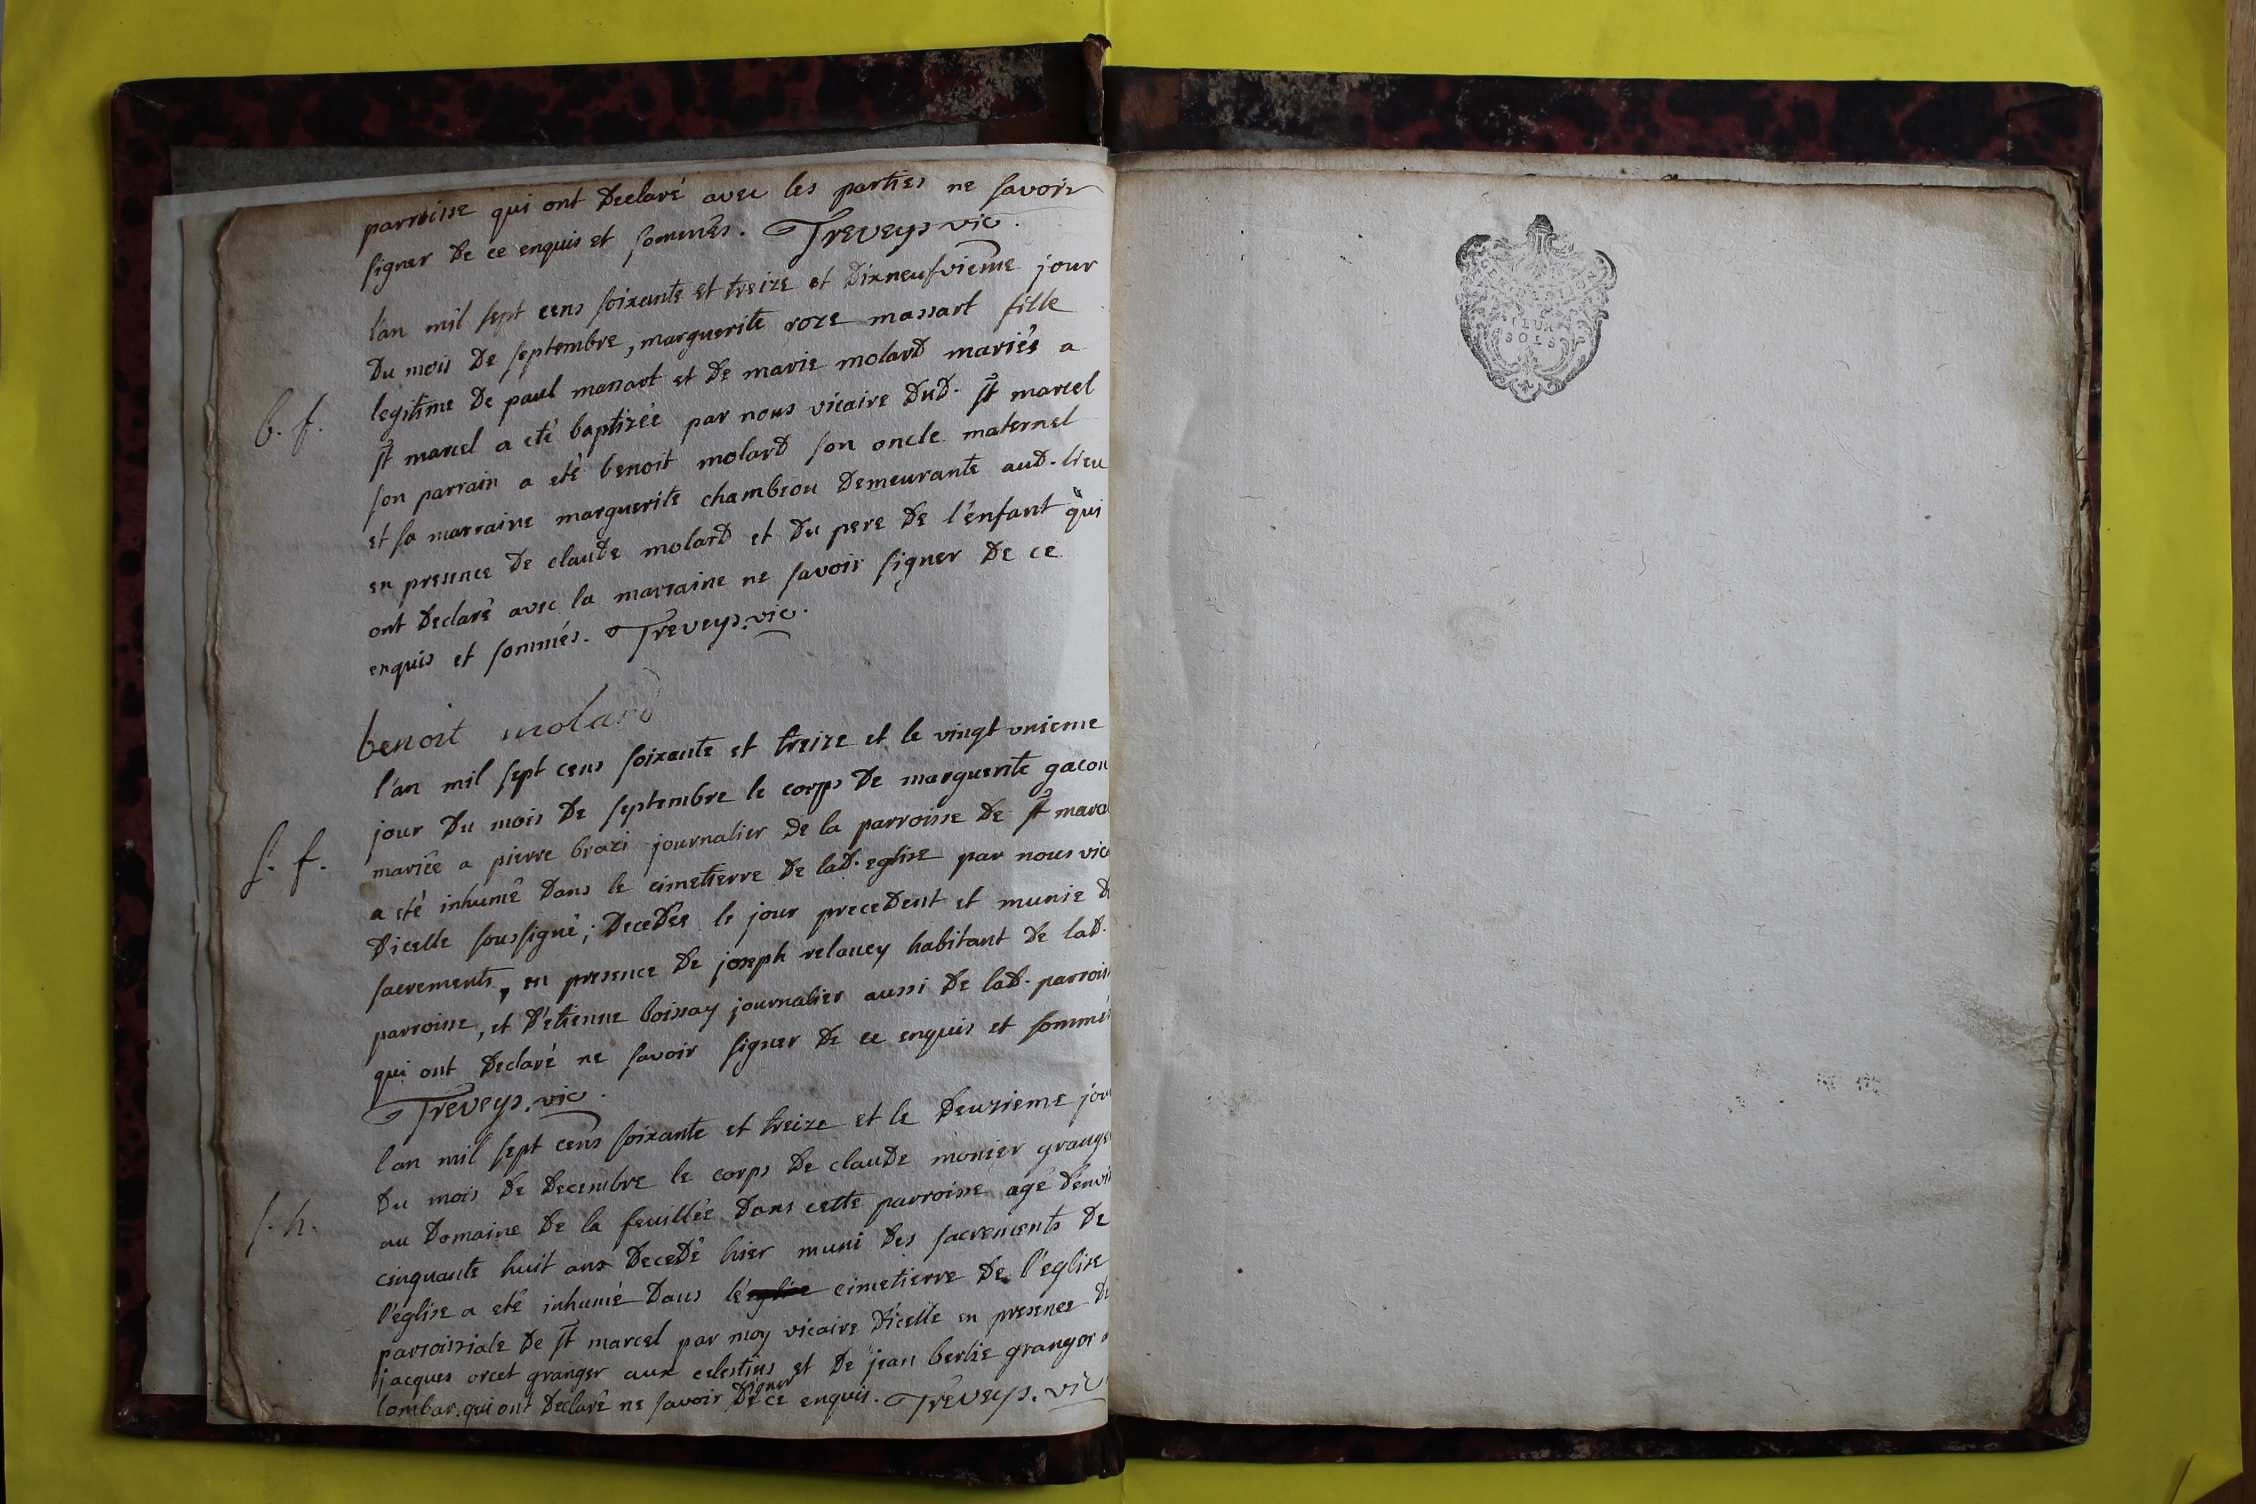 parroisse qui ont Declaré avec les parties ne savoir
signer De ce enquis et sommés. Treveys vic.
l'an mil sept cens soixante et treize et Dixneufvieme jour
Du mois De septembre, marguerite roze massart fille
b. f.
legitime De paul massart et De marie molard mariés a
st marcel a eté baptizée par nous vicaire DuD. st marcel
son parrain a eté benoit molard son oncle maternel
et sa marraine marguerite chambeou Demeurante auD. lieu
en presence De claude molard et Du pere De l'enfant qui
ont Declaré avec la marraine ne savoir signer De ce
enquis et sommés. Treveys. vic.
benoit molard
l'an mil sept cens soixante et treize et le vingt unieme
jour Du mois De septembre le corps De marguerite gacon
s. f.
mariée a pierre brazi journalier De la parroisse De st marcel
a eté inhumé Dans le cimetierre De laD. eglise par nous vic
D'icelle soussigné; Decedée le jour precedent et munie D
sacrements, en presence De joseph relavey habitant De laD.
parroisse, et D'etienne boissay journalier aussi De laD. parroiss
qui ont Declaré ne savoir signer De ce enquis et sommés
Treveys. vic.
l'an mil sept cens soixante et treize et le Deuzieme jour
Du mois De Decembre le corps De claude monier grange
s. h.
au Domaine De la feuillée Dans cette parroisse agé D'envi
cinquante huit ans Decedé hier muni Des sacrements De
l'église a eté inhumé Dans l'église cimetierre De l'église
parroissiale De st marcel par moy vicaire D'icelle en presence De
jacques orcet granger aux celestins et De jean berlie granger a
lombar. qui ont Declaré ne savoir signer De ce enquis. Treveys. vic
DEUX
SOLS